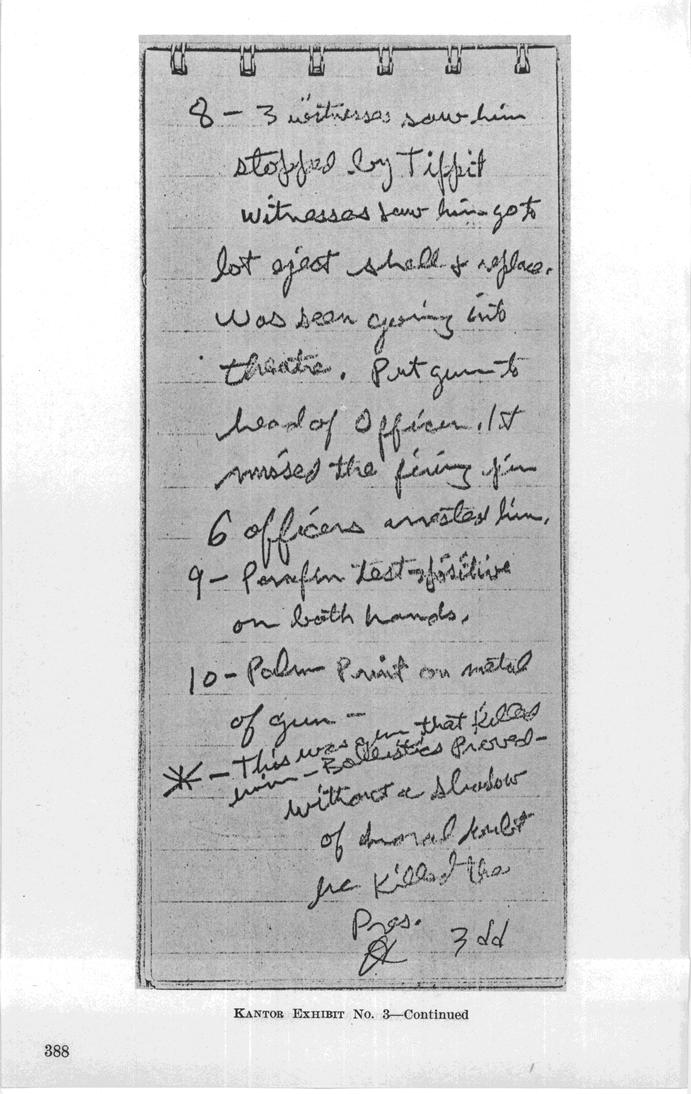 8 - 3 witnesses saw him
stopped by Tippit
witnesses saw him go to
lot eject shell & replace.
Was seen going into
theatre. Put gun to
head of Officer. 1st
missed the firing pin
6 officers arrested him.
9 - Parafin test - positive
on both hands.
10 - Palm Print on metal
of gun -
* - This was gun that Killed
him - Ballistics Proved -
without a shadow
of a moral doubt
he Killed the
Pres.
3 dd
KANTOR EXHIBIT No. 3—Continued
388